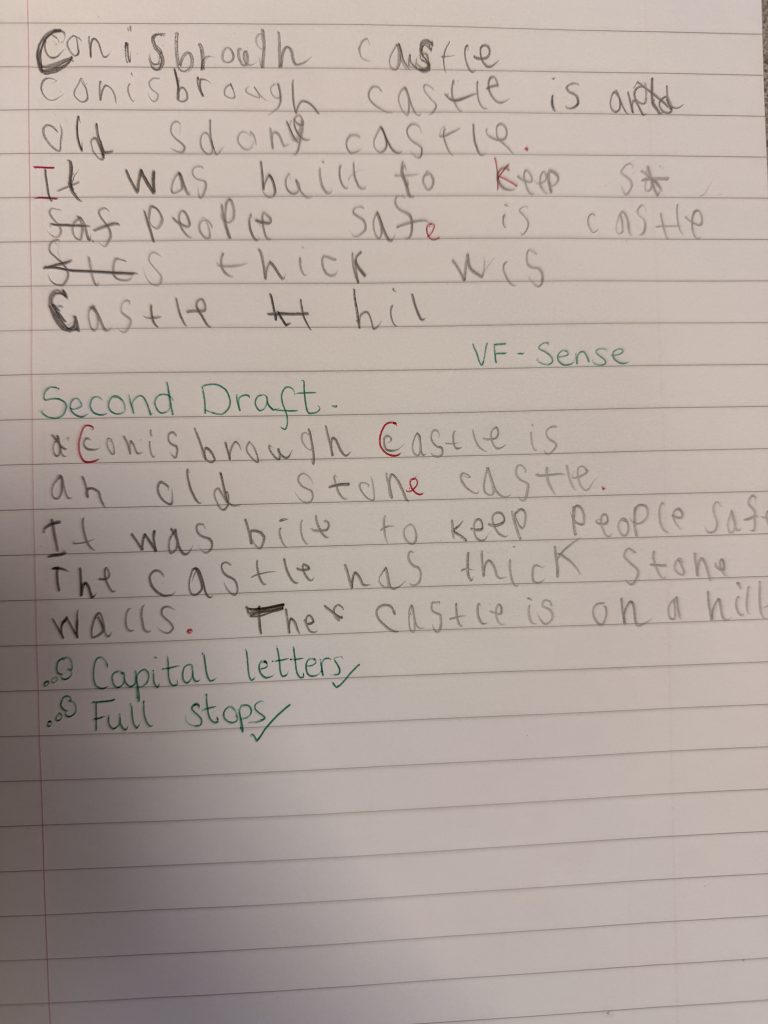 Conisbrough castle
conisbrough castle is
old sdone castle.
It was built to keep
saf people safe is castle
thick wis
Castle It hil
VF - Sense
Second Draft.
a Conisbrough Castle is
an old stone castle.
It was bilt to keep people safe
The castle has thick stone
walls. The castle is on a hill
Capital letters
Full stops